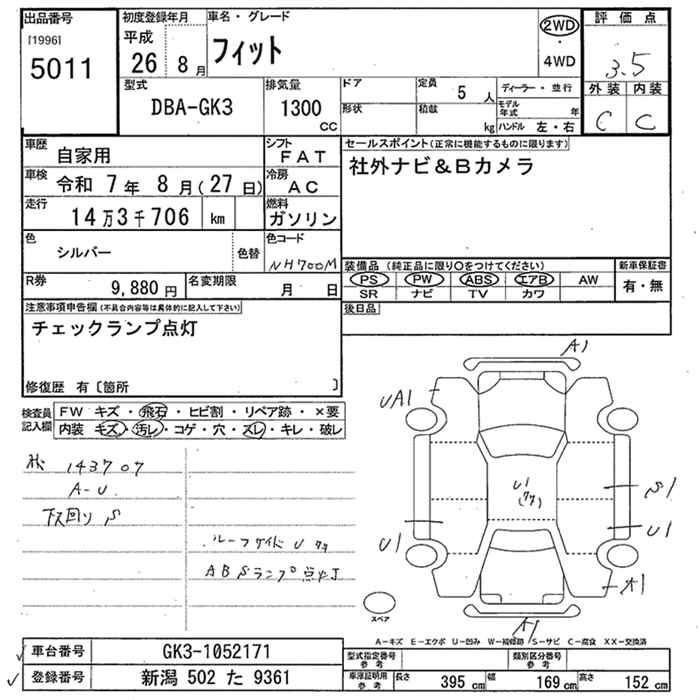 出品番号
[1996]
5011
初度登録年月
平成
26 8月
車名・グレード
フィット
2WD
・
4WD
評価点
3.5
外装 内装
C C
型式
DBA-GK3
排気量
1300
CC
ドア
形状
定員
5 人
積載
kg
ディーラー・並行
モデル年式 年
ハンドル 左・右
車歴
自家用
シフト
FAT
車検
令和 7年 8月(27日)
冷房
AC
走行
14万3千706 km
燃料
ガソリン
色
シルバー
色替
色コード
NH700M
R券
9,880円
名変期限
月 日
セールスポイント(正常に機能するものに限ります)
社外ナビ&Bカメラ
装備品 (純正品に限り○をつけてください)
PS PW ABS エアB AW
SR ナビ TV カワ
新車保証書
有・無
後日品
注意事項申告欄(不具合内容等は具体的に記入して下さい)
チェックランプ点灯
修復歴 有〔箇所 〕
検査員
記入欄
FW キズ・飛石・ヒビ割・リペア跡・×要
内装 キズ・汚レ・コゲ・穴・スレ・キレ・破レ
143707
A-U
下回り S
ルーフサイド U
ABSランプ点灯
A1
UA1
U1
S1
U1
U1
A1
A1
スペア
A-キズ E-エクボ U-凹み W-補修跡 S-サビ C-腐食 XX-交換済
車台番号
GK3-1052171
登録番号
新潟 502 た 9361
型式指定番号
参考
類別区分番号
参考
車庫証明用
参考
長さ 395 cm
幅 169 cm
高さ 152 cm